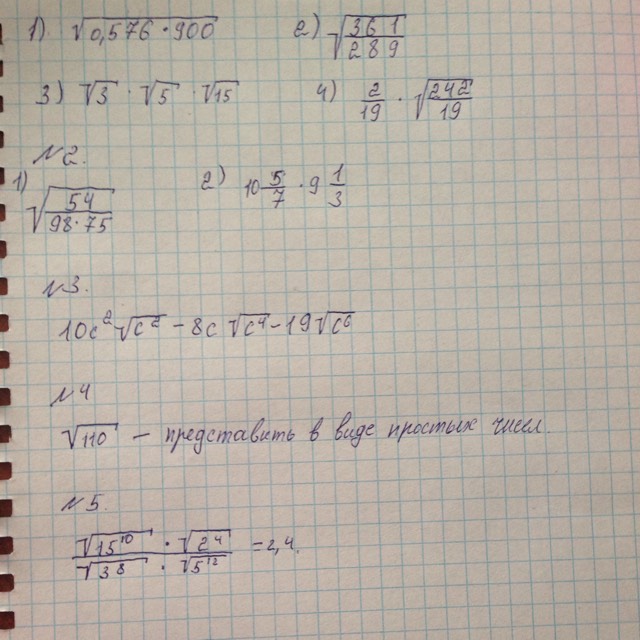 1) √0,576·900 2) √361/289
3) √3 · √5 · √15 4) 2/19 · √242/19
№2.
1) √54/98·75 2) 10 5/7 · 9 1/3
№3.
10c²√c² − 8c √c⁴ − 19√c⁶
№4
√110 — представить в виде простых чисел.
№5.
√15¹⁰ · √2⁴ / √3⁸ · √5¹² = 2,4.